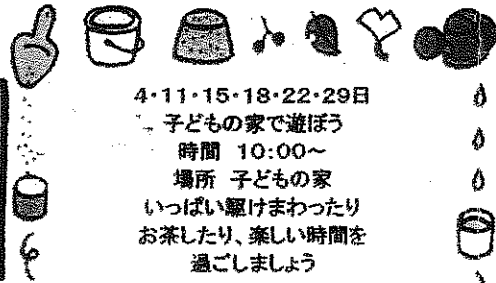 4・11・15・18・22・29日
子どもの家で遊ぼう
時間 10:00~
場所 子どもの家
いっぱい駆けまわったり
お茶したり、楽しい時間を
過ごしましょう